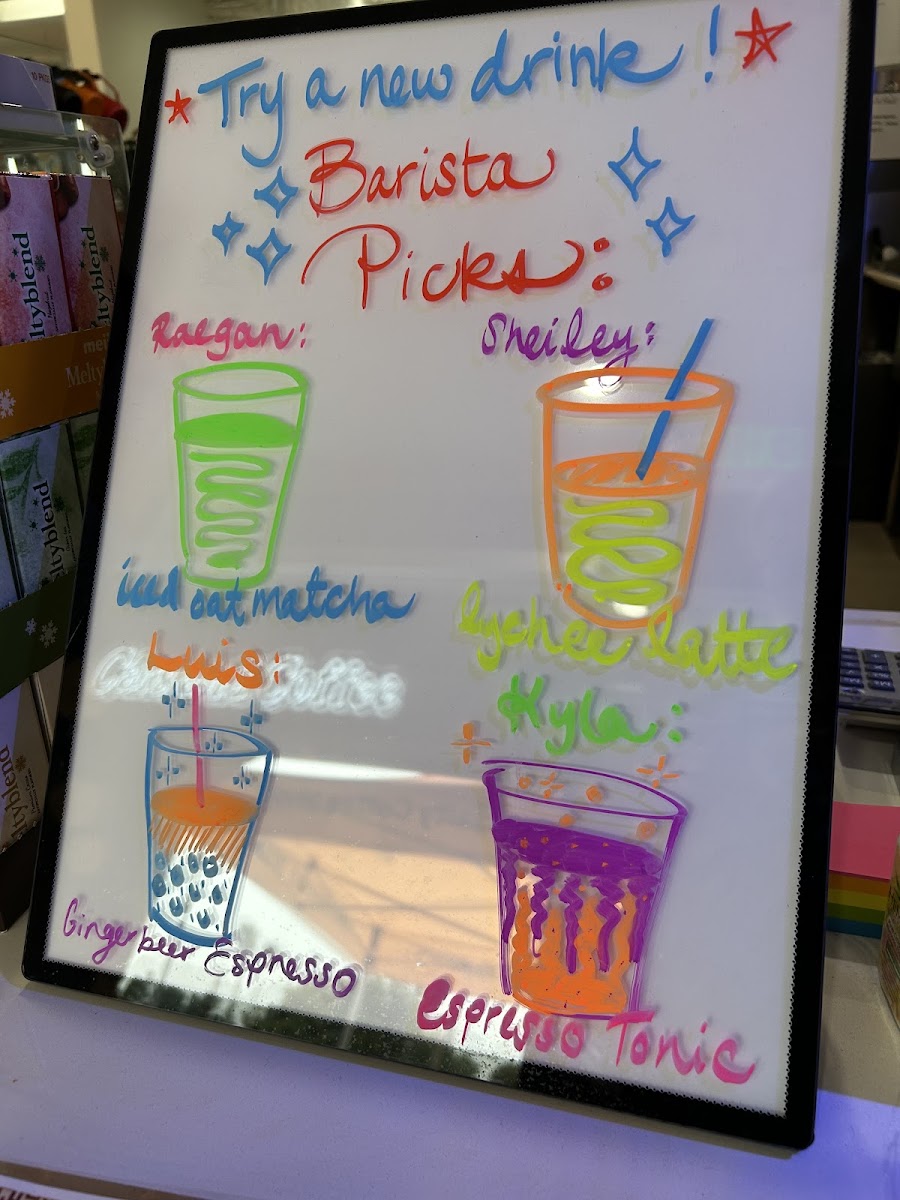 Try a new drink!
Barista
Picks:
Raegan:
iced oat matcha
Sheiley:
lychee latte
Luis:
Ginger beer Espresso
Kyla:
Espresso Tonic
ltyblend
ltyblend
mei
Melty
ltyblend
ltyblend
ltyblend